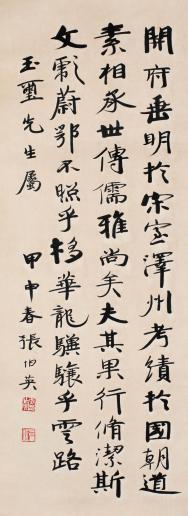 開府垂明於宋室澤州考績於國朝道
素相承世傳儒雅尚矣夫其果行脩潔斯
文彪蔚鄂不照乎移華龍驥驤乎雲路
玉璽先生屬
甲申春張伯英